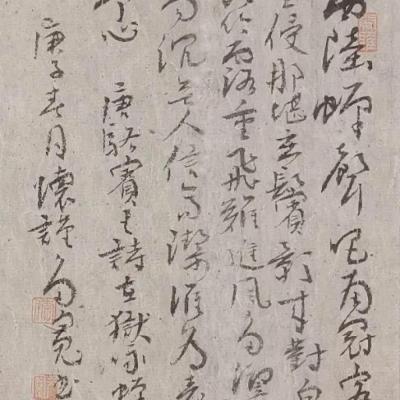 西陸蟬聲唱南冠客
侵那堪玄鬢影來對白
吟露重飛難進風多響
易沉無人信高潔誰為表
予心 唐駱賓王詩在獄詠蟬
庚子春月懷謹書